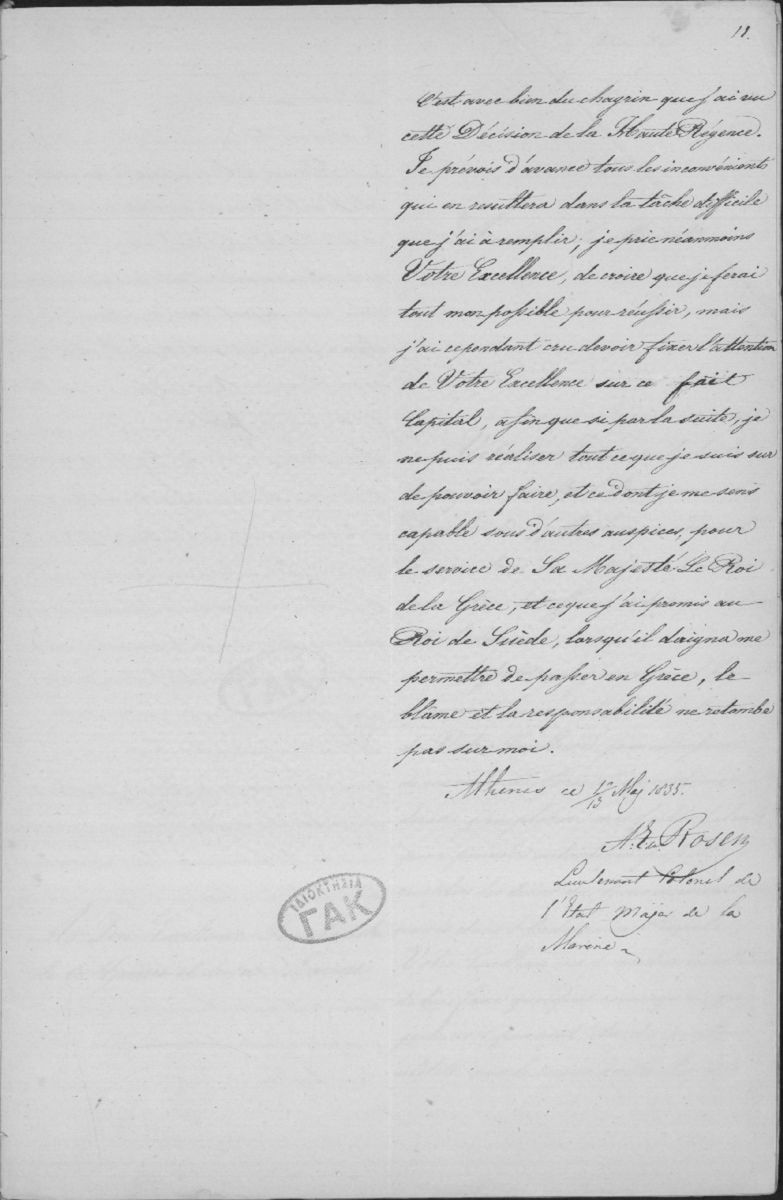 18.
C'est avec bien du chagrin que j'ai vu
cette Décision de la Haute Régence.
Je prévois d'avance tous les inconvénients
qui en resultera dans la tâche difficile
que j'ai à remplir; je prie néanmoins
Votre Excellence, de croire que je ferai
tout mon possible pour réussir, mais
j'ai cependant cru devoir fixer l'attention
de Votre Excellence sur ce fait
Capital, afin que si par la suite, je
ne puis réaliser tout ce que je suis sur
de pouvoir faire, et ce dont je me sens
capable sous d'autres auspices, pour
le service de Sa Majesté Le Roi
de la Grèce, et ce que j'ai promis au
Roi de Suède, lorsqu'il daigna me
permettre de passer en Grèce, le
blâme et la responsabilité ne retombe
pas sur moi.
Athènes ce 1/13 Maj 1835.
Rosen
Lieutenant Colonel de
l'Etat Major de la
Marine
ΙΔΙΟΚΤΗΣΙΑ
ΓΑΚ